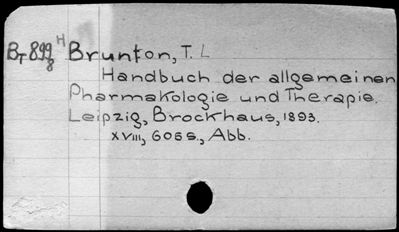 BT 899 H Brunton, T. L
8
Handbuch der allgemeinen
Pharmakologie und Therapie.
Leipzig, Brockhaus, 1893.
XVIII, 606 S., Abb.